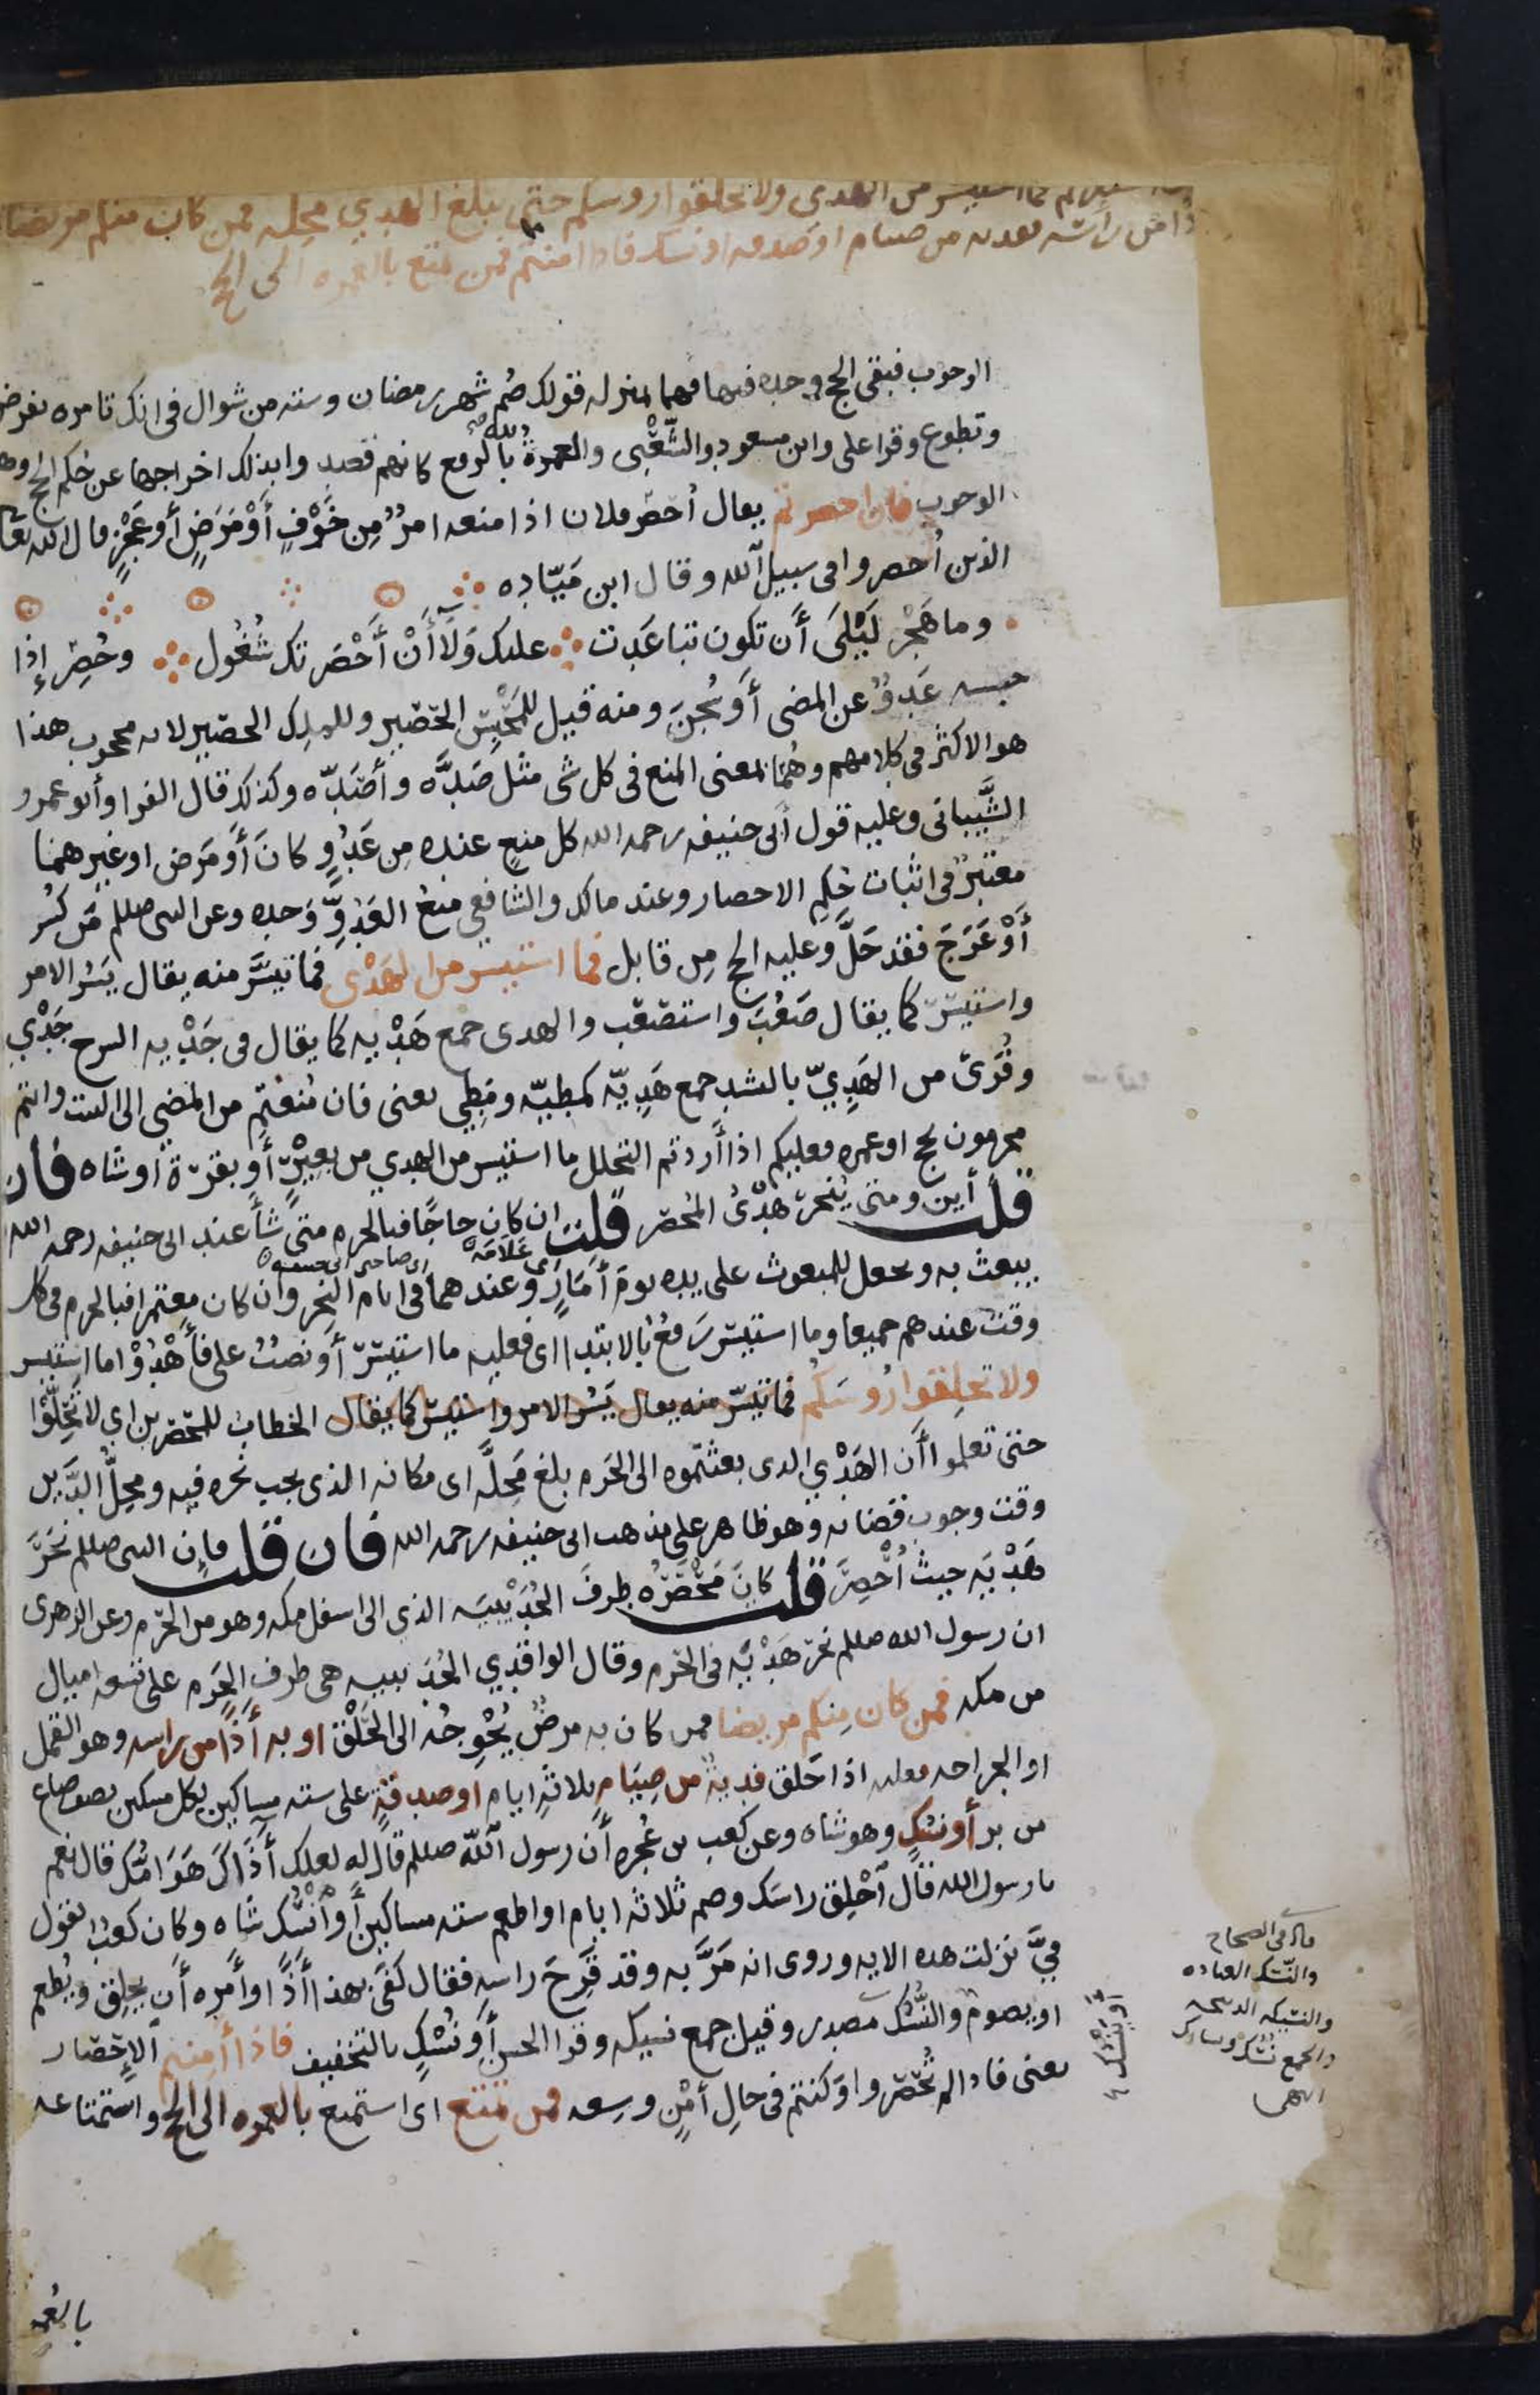 استيسر من الهدى ولا تحلقوا روسكم حتى يبلغ الهدي محله فمن كان منكم مريضا
من راسه ففديه من صيام او صدقه او نسك فاذا امنتم فمن تمتع بالعمره الى الحج
الوجوب فبقى الحج وحده فيها فهما بمنزله قولك صُم شهر رمضان وسته من شوال فى انك تامره بفرض
وتطوع وقرا على وابن مسعود والشَّعْبى والعمرةُ لله بالرفع كانهم قصدوا بذلك اخراجها عن حُكم الحج وهو
الوجوب فان احصرتم يقال أحصر فلان اذا منعه امرٌ مِن خَوْفٍ أَوْ مَرَضٍ أو عَجْزٍ قال الله تعا
الذين أحصروا فى سبيل الله وقال ابن مَيّاده
وما هَجْر لَيْلَى أَن تكون تباعَدت عليك وَلَا أَنْ أَحْصَرتك شُغُول وحُصِر إذا
حبسه عَدوٌ عن المضى أو سُجنَ ومنه قيل للمَحْبِس الحَصير وللملِك الحصير لانه محجوب هذا
هو الاكثر فى كلامهم وهُمَا بمعنى المنع فى كل شى مثل صَدَّه وأصَدّه وكذلك قال الفرا وأبو عمرو
الشَّيبانى وعليه قول أبى حنيفه رحمه الله كل منعٍ عنده مِن عَدُوٍّ كانَ أَو مَرَض او غيرهما
معتبرٌ فى اثبات حُكمِ الاحصار وعند مالك والشافعى منعُ العَدوِّ وَحده وعن النبى صللم مَن كُسر
أَوْ عَرَجَ فقد حَلَّ وعليه الحج مِن قابل فما استيسر من الهَدْى فما تيسَّر منه يقال يَسُر الامر
واستيسَر كما يقال صَعُبَ واستصْعَب والهدى جمع هَدْيه كما يقال فى جَدْيه السرج جَدْي
وقُرئ من الهَدِيّ بالتشديد جمع هَدِيّه كمطيّه ومَطِى يعنى فان مُنعتم من المضى الى البيت وانتم
محرمون بحج او عمره فعليكم اذا أردتم التحلل ما استيسر من الهدي من بعيرٍ أو بقرَة أو شَاه فان
قلت أين ومتى يُنحر هَدْىُ المُحصَر قلت ان كان حاجًا فبالحرم متى شأ عند ابى حنيفه رحمه الله
اى عَلَامَة اى صاحبى ابى حنيفه
يبعث به ويجعل للمبعوث على يده يوم أَمَارٍ وعندهما فى ايام النحر وان كان معتمرا فبالحرم فى كل
وقت عندهم جميعا وما استيسَر رَفعٌ بالابتدا اى فعليه ما استيسَر أو نصبٌ على فأهدُوْا ما استيسر
ولا تحلِقوا رُوسَكُم فما تيسّر منه يقال يَسُر الامر واستيسَر كما يقال الخطابُ للمُحصَرين اي لا تَحِلّوْا
حتى تعلموا أن الهَدْي الذى بعثتموه الى الحَرم بلغ مَحِلَّه اى مكانه الذى يجب نحره فيه ومَحِلُّ الدَّين
وقت وجوب قضائه وهو ظاهر على مذهب ابى حنيفه رحمه الله فان قلت فإن النبى صللم نَحَرَ
هَدْيَه حيثُ أُحْصِرَ قلت كانَ مَحْصَرُه طرفَ الحُدَيْبيَه الذي الى اسفل مكه وهو من الحَرم وعن الزهرى
ان رسول الله صللم نحر هَدْيَه فى الحَرم وقال الواقدِي الحُدَيبيه هى طرف الحَرم على تسعه اميال
من مكه فمن كان مِنكم مريضا فمن كان به مرضٌ يُحْوِجُه الى الحَلْق او به أَذًا من راسه وهو القمل
او الجراحه فعليه اذا حَلق فديةٌ من صِيَامٍ ثلاثةِ ايام او صدقةٍ على سته مساكين لكل مسكين نصف صاع
من بر أو نسُكٍ وهو شاه وعن كعب بن عُجره أن رسول الله صللم قال له لعلك أَذَاكَ هَوَامُّك قال نعم
يا رسول الله قال أحْلِق راسَك وصم ثلاثه ايام او اطعم سته مساكين أو أنْسُك شاه وكان كعبٌ يقول
فِيَّ نزلت هذه الايه وروى انه مَرَّ به وقد قَرِحَ راسه فقال كَفَى بهذا أَذًا وأمَره أن يحلِق ويُطعِم
او يصوم والنُّسُك مصدر وقيل جمع نسيكه وقرا الحسن أو نُسْكٍ بالتخفيف فاذا أمِنتم الإحْصَار
يعنى فاذا لم تُحْصَروا وكنتم فى حالِ أمْنٍ وسِعه فمن تمتع اى استمتع بالعمره الى الحج واستمتاعه
قال فى الصحاح
والنّسك العباده
والنسيكه الذبيحه
والجمع نُسُك ونسائك
انتهى
بالعُمره